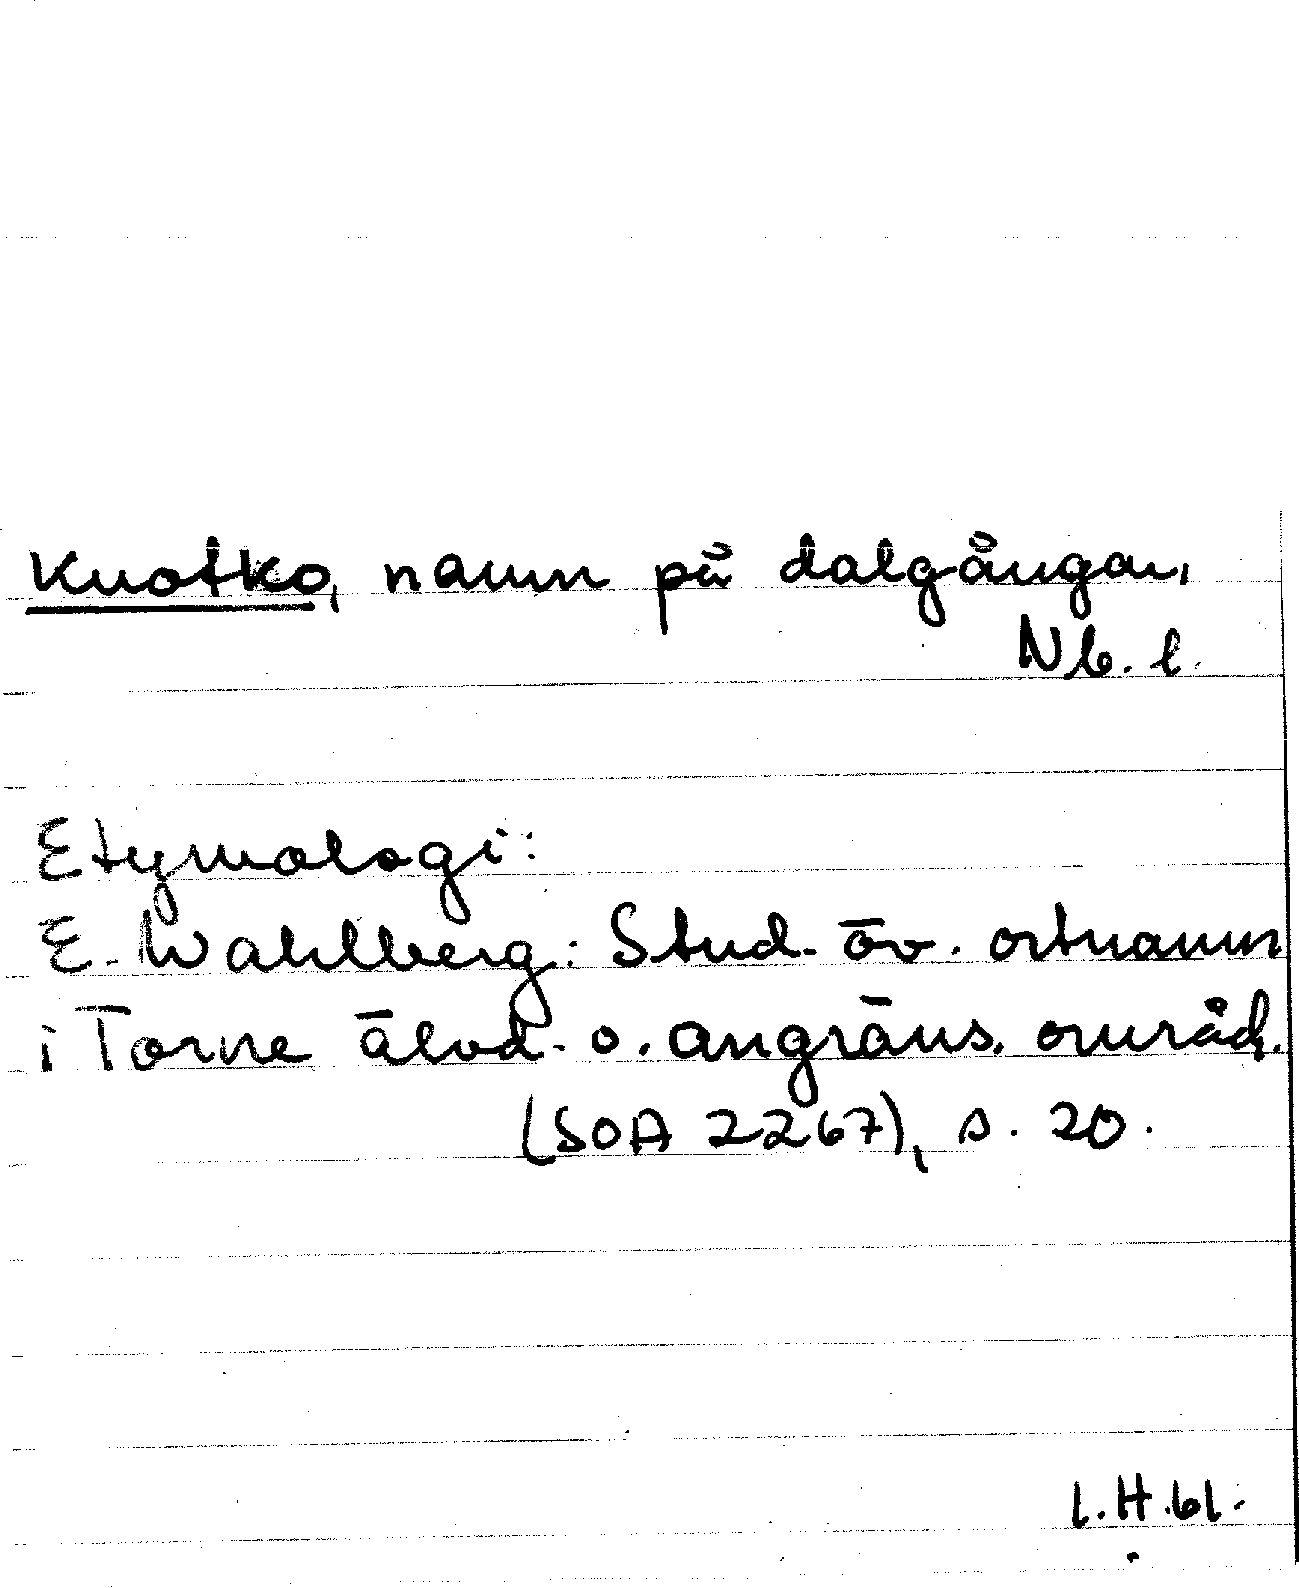 Kuotko, namn på dalgångar,
Nb. l.
Etymologi:
E. Wahlberg: Stud. öv. ortnamn
i Torne älvd. o. angräns. områd.
(SOA 2267), s. 20.
I.H.61.